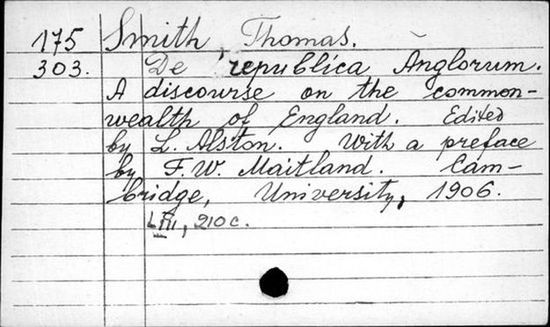 175 Smith, Thomas.
303. De republica Anglorum.
A discourse on the common-
wealth of England. Edited
by L. Alston. With a preface
by F. W. Maitland. Cam-
bridge, University, 1906.
210c.